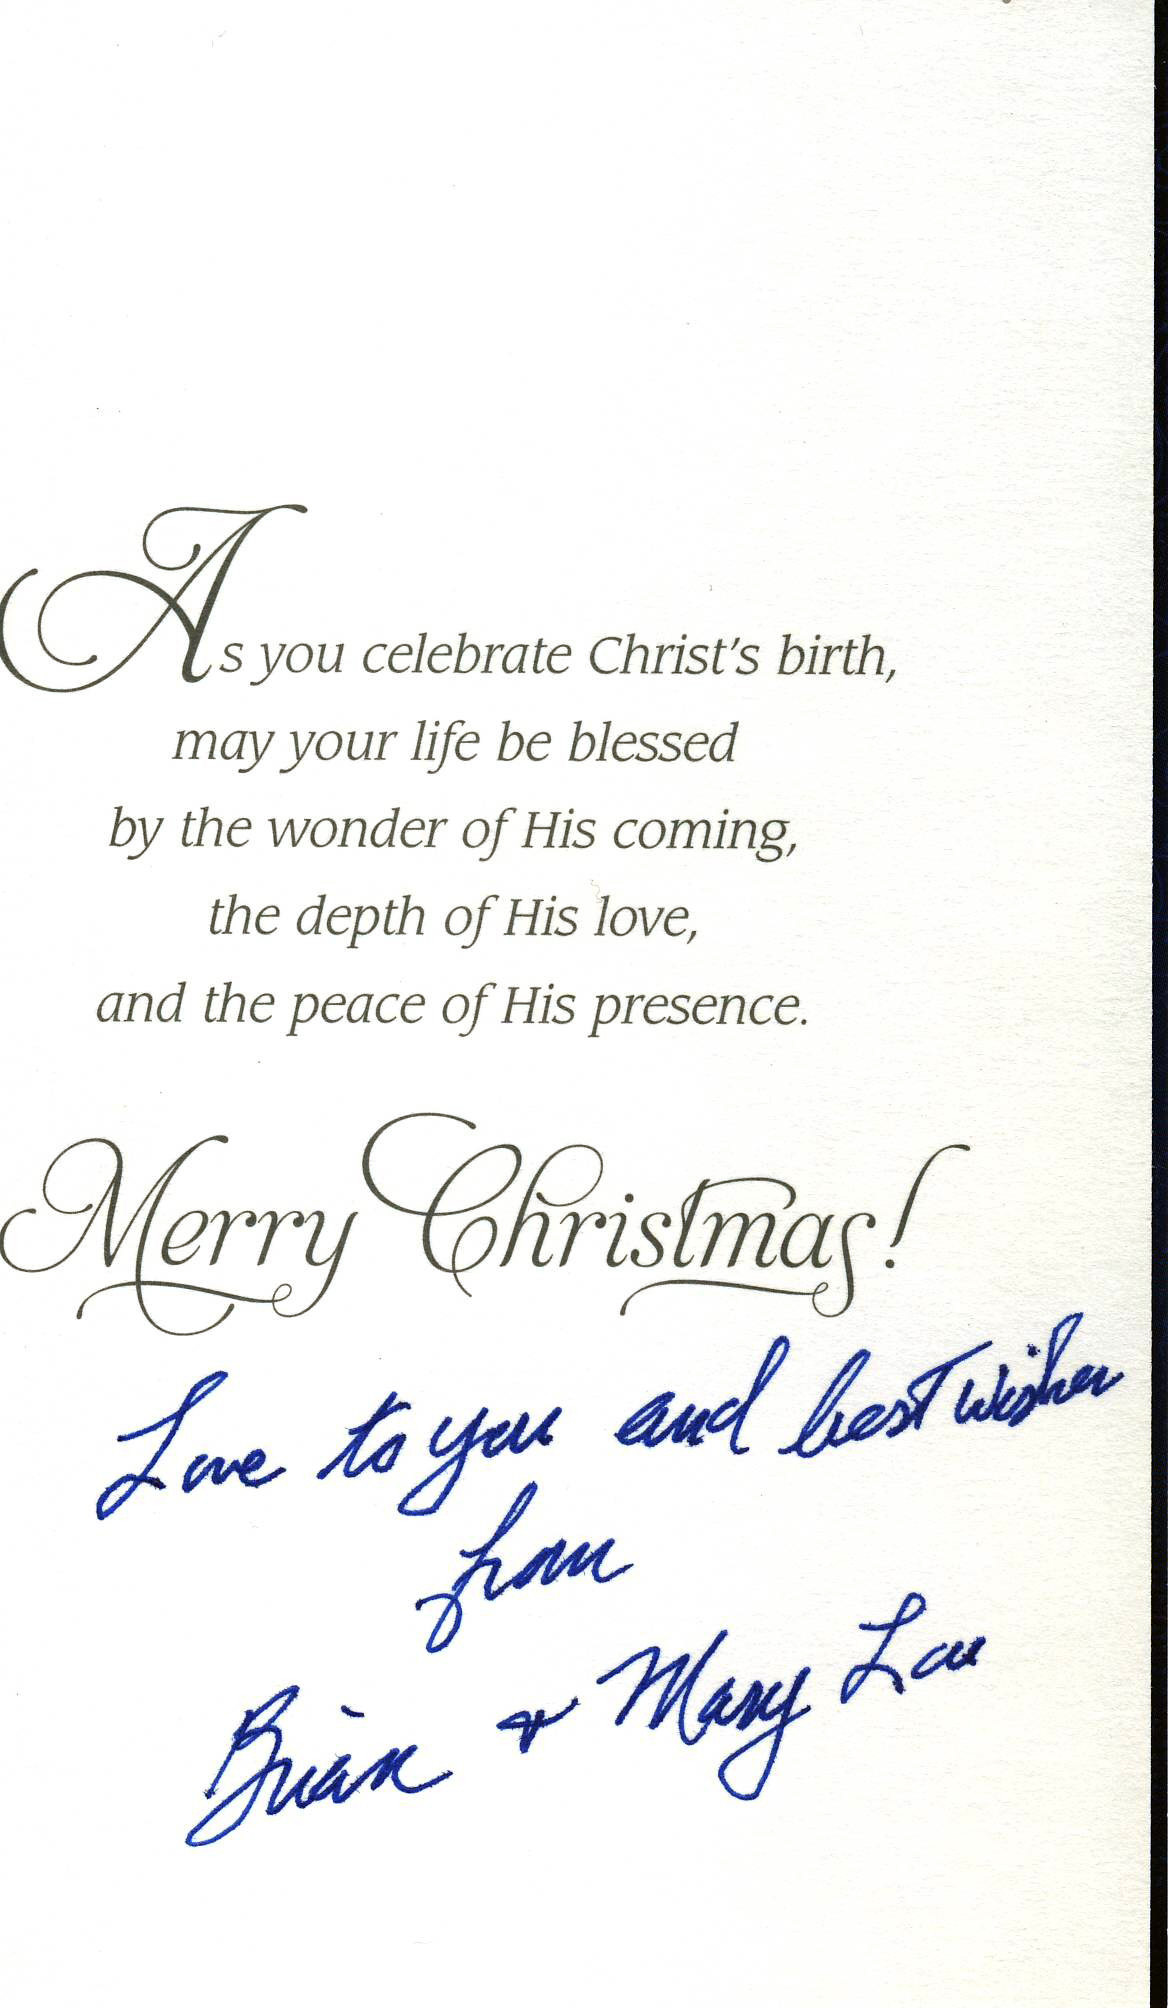 As you celebrate Christ's birth,
may your life be blessed
by the wonder of His coming,
the depth of His love,
and the peace of His presence.
Merry Christmas!
Love to you and best wishes
from
Brian + Mary Lou